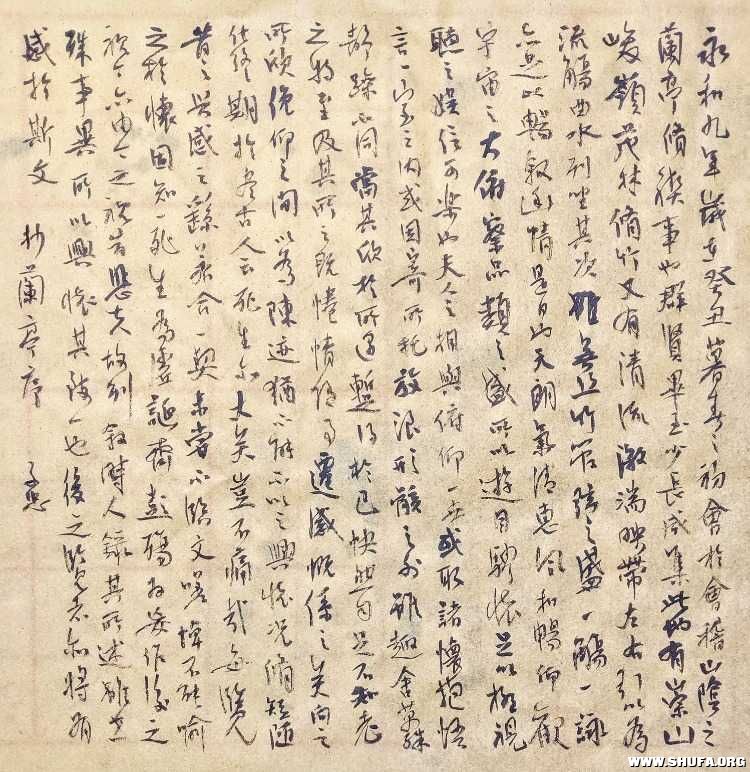 永和九年歲在癸丑暮春之初會於會稽山陰之
蘭亭脩禊事也群賢畢至少長咸集此地有崇山
峻嶺茂林脩竹又有清流激湍映帶左右引以為
流觴曲水列坐其次雖無絲竹管弦之盛一觴一詠
亦足以暢敘幽情是日也天朗氣清惠風和暢仰觀
宇宙之大俯察品類之盛所以遊目騁懷足以極視
聽之娛信可樂也夫人之相與俯仰一世或取諸懷抱悟
言一室之內或因寄所托放浪形骸之外雖趣舍萬殊
靜躁不同當其欣於所遇暫得於己快然自足不知老
之將至及其所之既惓情隨事遷感慨係之矣向之
所欣俛仰之間以為陳迹猶不能不以之興懷況脩短隨
化終期於盡古人云死生亦大矣豈不痛哉每覽
昔人興感之繇若合一契未嘗不臨文嗟悼不能喻
之於懷固知一死生為虛誕齊彭殤為妄作後之
視今亦由今之視昔悲夫故列敘時人錄其所述雖世
殊事異所以興懷其致一也後之覽者亦將有
感於斯文 抄蘭亭序
WWW.SHUFA.ORG